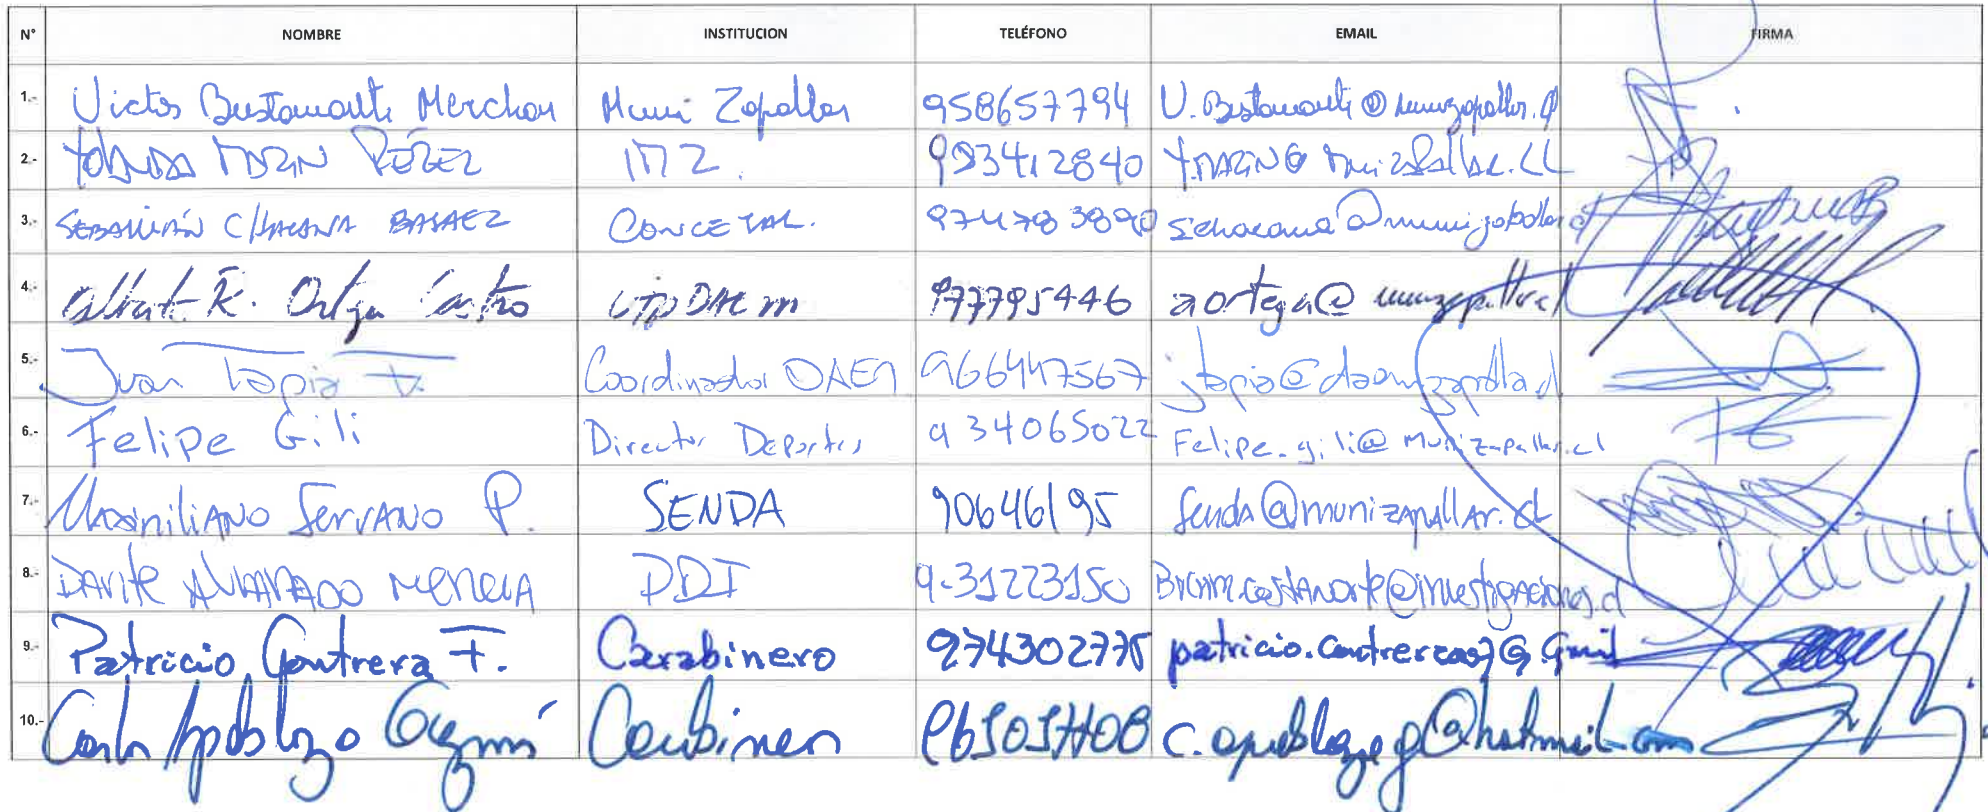 N° NOMBRE INSTITUCION TELÉFONO EMAIL FIRMA
1.- Victor Bustamante Merchan Muni Zapallar 958657794 V.Bustamante@munizapallar.cl
2.- YOLANDA MARIN PÉREZ IMZ. 993412840 Y.MARIN@munizapallar.CL
3.- SEBASTIÁN CHACANA BASAEZ CONCEJAL. schacana@munizapallar.cl
4.- Albert R. Ortega Castro UTP DAEM 977795446 aortega@munizapallar.cl
5.- Juan Tapia F. Coordinador DAEM 966447567 jtapia@daemzapallar.cl
6.- Felipe Gili Director Deportes 934065022 Felipe.gili@Munizapallar.cl
7.- Maximiliano Serrano P. SENDA 90646195 Senda@munizapallar.cl
8.- DANTE ALVARADO PDI 9-31223150 Bicrim.costanorte@investigaciones.cl
9.- Patricio Contrera F. Carabinero patricio.contreras7@Gmail
10.- Carlos Apablaza Carabinero c.apablaza.g@hotmail.com